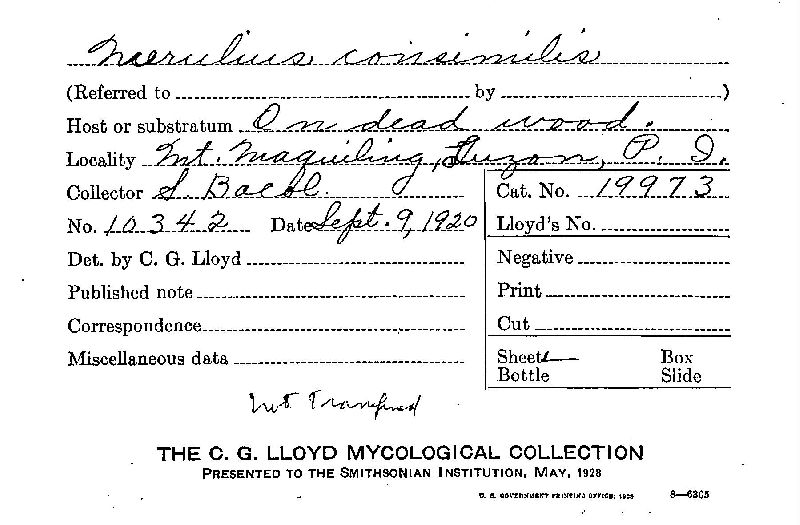 Merulius consimilis
(Referred to by )
Host or substratum On dead wood.
Locality Mt. Maquiling, Luzon, P. I.
Collector S. Bacol. Cat. No. 19973
No. 10342 Date Sept. 9, 1920 Lloyd's No.
Det. by C. G. Lloyd Negative
Published note Print
Correspondence Cut
Miscellaneous data Sheet Box
Bottle Slide
Not Transferred
THE C. G. LLOYD MYCOLOGICAL COLLECTION
PRESENTED TO THE SMITHSONIAN INSTITUTION, MAY, 1928
U. S. GOVERNMENT PRINTING OFFICE: 1928 8—6305